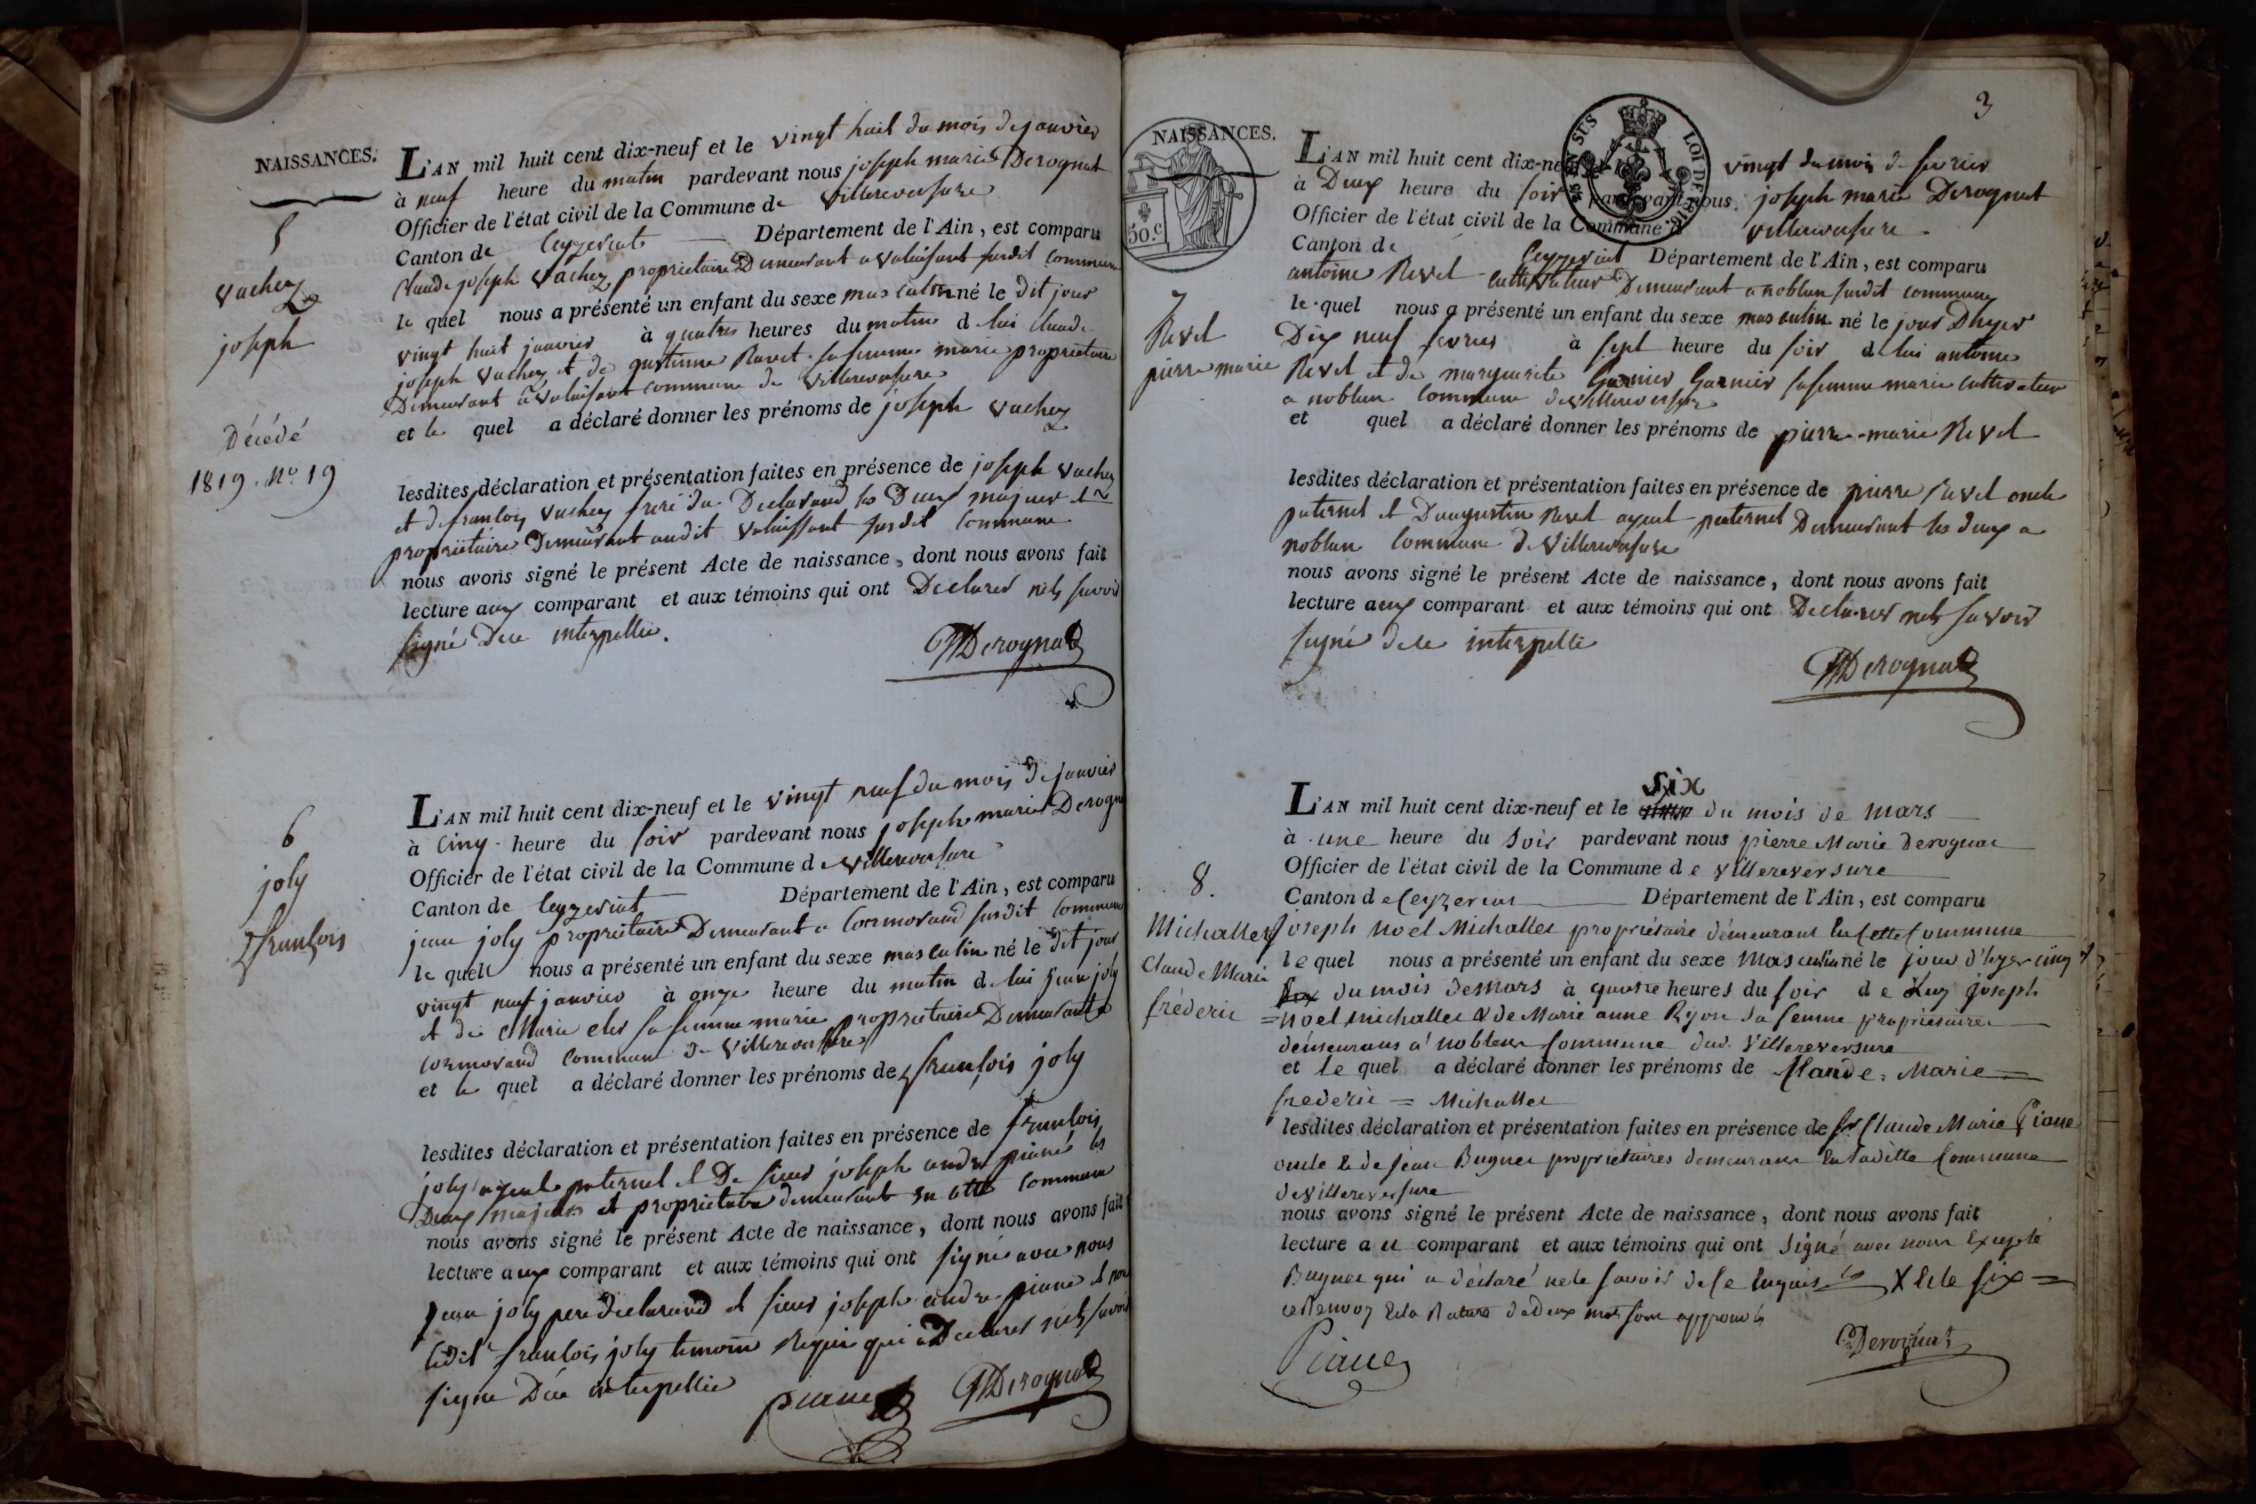 NAISSANCES.
5
vachez
joseph
Décédé
1819. No 19
L'AN mil huit cent dix-neuf et le vingt huit du mois de janvier
à neuf heure du matin pardevant nous joseph marie Derognat
Officier de l'état civil de la Commune de villereversure
Canton de Ceyzeriat Département de l'Ain, est comparu
Claude joseph vachez proprietaire Demeurant a valuisant susdit commune
le quel nous a présenté un enfant du sexe masculin né le dit jour
vingt huit janvier à quatre heures du matin de lui Claude
joseph vachez et de Ravet sa femme marie proprietaire
Demeurant a valuisant commune de villereversure
et le quel a déclaré donner les prénoms de joseph vachez
lesdites déclaration et présentation faites en présence de joseph vachez
et de francois vachez frere du Declarand les Deux majeur et
proprietaire Demeurant audit valuissant susdit commune
nous avons signé le présent Acte de naissance, dont nous avons fait
lecture aux comparant et aux témoins qui ont Declarer nes savoir
signé Dce interpellie.
Derognat
6
joly
francois
L'AN mil huit cent dix-neuf et le vingt neuf du mois de janvier
à cinq heure du soir pardevant nous joseph marie Derogna
Officier de l'état civil de la Commune de villereversure
Canton de Ceyzeriat Département de l'Ain, est comparu
jean joly proprietaire Demeurant a Cormorand susdit commune
le quel nous a présenté un enfant du sexe masculin né le dit jour
vingt neuf janvier à onze heure du matin de lui jean joly
et de Marie sa femme marie proprietaire Demeurant a
cormorand commune de villereversure
et le quel a déclaré donner les prénoms de francois joly
lesdites déclaration et présentation faites en présence de francois
joly ayeul paternel et De sieur joseph andre piané les
Deux majeurs et proprietaire demeurant en cette commune
nous avons signé le présent Acte de naissance, dont nous avons fait
lecture aux comparant et aux témoins qui ont signé avec nous
jean joly pere declarand et sieur joseph andre piane et non
ledit francois joly temoin Requi qui a Declarer nes savoir
signé Dce interpellie
piane Derognat
3
NAISSANCES.
50.c
LOI DE 1816.
7
Revel
pierre marie
L'AN mil huit cent dix-neuf et le vingt du mois de fevrier
à Deux heure du soir pardevant nous joseph marie Derognat
Officier de l'état civil de la Commune d villereversure
Canton de Ceyzeriat Département de l'Ain, est comparu
antoine Revel cultivateur Demeurant a noblan susdit commune
le quel nous a présenté un enfant du sexe masculin né le jour Dhyer
Dix neuf fevrier à sept heure du soir de lui antoine
Revel et de marguerite Garnier Garnier sa femme marie cultivateur
a noblan commune de villereversure
et quel a déclaré donner les prénoms de pierre-marie Revel
lesdites déclaration et présentation faites en présence de pierre Revel oncle
paternel et Daugustin Revel ayeul paternel Demeurant les deux a
noblan commune de villereversure
nous avons signé le présent Acte de naissance, dont nous avons fait
lecture aux comparant et aux témoins qui ont Declarer nes savoir
signé de ce interpellie
Derognat
8.
Michallet
Claude Marie
fréderic =
L'AN mil huit cent dix-neuf et le six du mois de mars
à une heure du soir pardevant nous pierre Marie derognat
Officier de l'état civil de la Commune de villereversure
Canton de Ceyzeriat Département de l'Ain, est comparu
joseph noel Michallet propriétaire démeurant En cette Commune
le quel nous a présenté un enfant du sexe masculin né le jour d'hyer cinq
du mois de mars à quatre heures du soir de Luy joseph
noel michallet & de Marie anne Ryon sa femme propriétaires
démeurans a noblens Commune dud. villereversure
et le quel a déclaré donner les prénoms de Claude, Marie =
frederic = Michallet
lesdites déclaration et présentation faites en présence de Sr Claude Marie Piane
oncle & de jean Buguet propriétaires demeurans En Ladille Commune
de villereversure
nous avons signé le présent Acte de naissance, dont nous avons fait
lecture au comparant et aux témoins qui ont signé avec nous Excepté
Buguet qui a déclaré ne le savoir de ce Enquis X & le six =
ce Renvoy & la Rature de deux mots sont approuvés
Piane Derognat